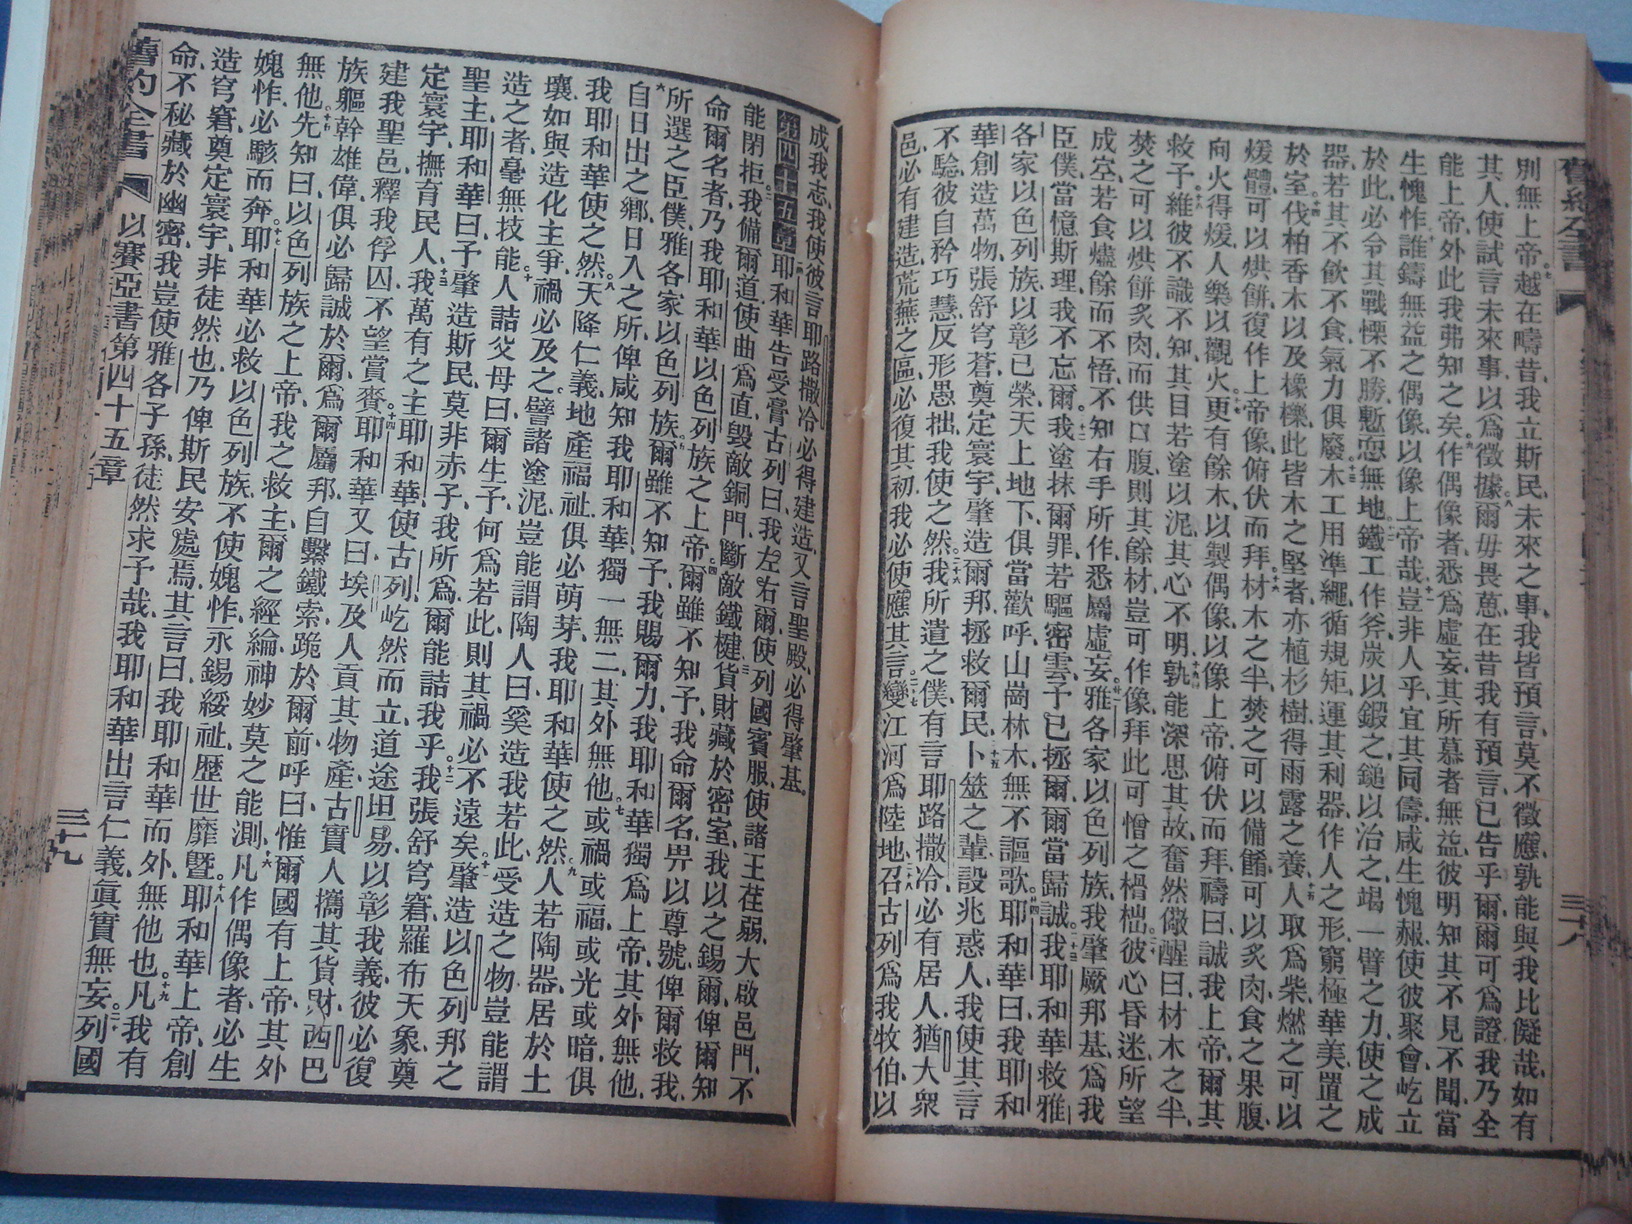 別無上帝越在疇昔我立斯民未來之事我皆預言莫不徵應孰能與我比儗哉如有
其人使試言未來事以爲徵據爾毋畏葸在昔我有預言已告乎爾爾可爲證我乃全
能上帝外此我弗知之矣作偶像者悉爲虛妄其所慕者無益彼明知其不見不聞當
生愧怍誰鑄無益之偶像以像上帝哉豈非人乎宜其同儔咸生愧赧使彼聚會屹立
於此必令其戰慄不勝慙恧無地鐵工作斧炭以鍜之鎚以治之竭一臂之力使之成
器若其不飲不食氣力俱廢木工用準繩循規矩運其利器作人之形窮極華美置之
於室伐柏香木以及橡櫟此皆木之堅者亦植杉樹得雨露之養人取爲柴燃之可以
煖體可以烘餅復作上帝像俯伏而拜材木之半焚之可以備餚可以炙肉食之果腹
向火得煖人樂以觀火更有餘木以製偶像以像上帝俯伏而拜禱曰誠我上帝爾其
救予維彼不識不知其目若塗以泥其心不明孰能深思其故奮然儆醒曰材木之半
焚之可以烘餅炙肉而供口腹則其餘材豈可作像拜此可憎之榾柮彼心昏迷所望
成空若食燼餘而不悟不知右手所作悉屬虛妄雅各家以色列族我肇厥邦基爲我
臣僕當憶斯理我不忘爾我塗抹爾罪若驅密雲予已拯爾爾當歸誠我耶和華救雅
各家以色列族以彰己榮天上地下俱當歡呼山崗林木無不謳歌耶和華曰我耶和
華創造萬物張舒穹蒼奠定寰宇肇造爾邦拯救爾民卜筮之輩設兆惑人我使其言
不騐彼自矜巧慧反形愚拙我使之然我所遣之僕有言耶路撒冷必有居人猶大衆
邑必有建造荒蕪之區必復其初我必使應其言變江河爲陸地召古列爲我牧伯以
成我志我使彼言耶路撒冷必得建造又言聖殿必得肇基
第四十五章耶和華告受膏古列曰我左右爾使列國賓服使諸王荏弱大啟邑門不
能閉拒我備爾道使曲爲直毀敵銅門斷敵鐵楗貨財藏於密室我以之錫爾俾爾知
命爾名者乃我耶和華以色列族之上帝爾雖不知予我命爾名畀以尊號俾爾救我
所選之臣僕雅各家以色列族爾雖不知予我賜爾力我耶和華獨爲上帝其外無他
自日出之鄉日入之所俾咸知我耶和華獨一無二其外無他或禍或福或光或暗俱
我耶和華使之然天降仁義地產福祉俱必萌芽我耶和華使之然人若陶器居於土
壤如與造化主爭禍必及之譬諸塗泥豈能謂陶人曰奚造我若此受造之物豈能謂
造之者毫無技能人詰父母曰爾生子何爲若此則其禍必不遠矣肇造以色列邦之
聖主耶和華曰予肇造斯民莫非赤子我所爲爾能詰我乎我張舒穹窘羅布天象奠
定寰宇撫育民人我萬有之主耶和華使古列屹然而立道途坦易以彰我義彼必復
建我聖邑釋我俘囚不望賞賚耶和華又曰埃及人貢其物產古實人攜其貨財西巴
族軀幹雄偉俱必歸誠於爾爲爾屬邦自繫鐵索跪於爾前呼曰惟爾國有上帝其外
無他先知曰以色列族之上帝我之救主爾之經綸神妙莫之能測凡作偶像者必生
媿怍必駭而奔耶和華必救以色列族不使媿怍永錫綏祉歴世靡曁耶和華上帝創
造穹窘奠定寰宇非徒然也乃俾斯民安處焉其言曰我耶和華而外無他也凡我有
命不秘藏於幽密我豈使雅各子孫徒然求予哉我耶和華出言仁義眞實無妄列國
舊約全書 以賽亞書第四十五章 三十九